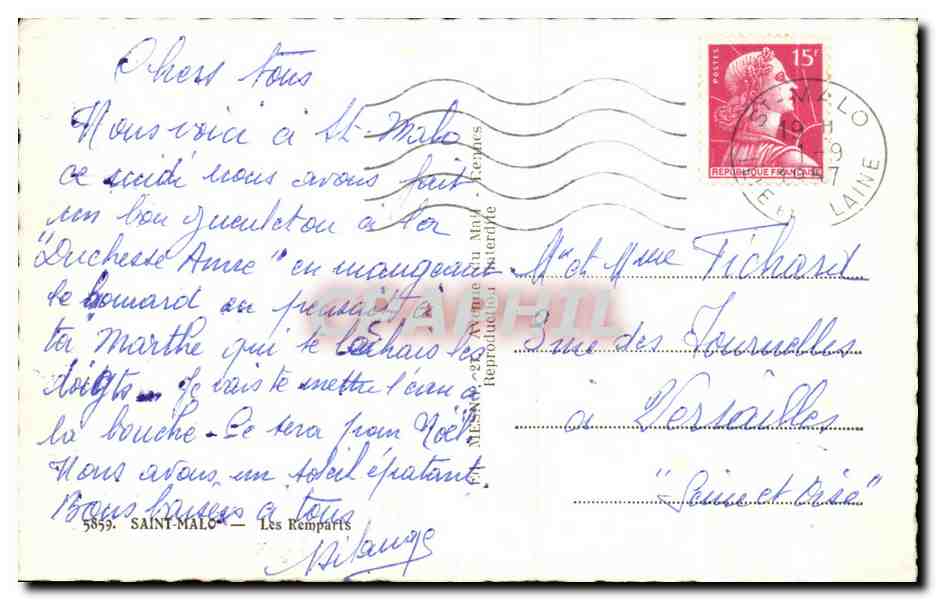 Chers tous
Nous voici à St Malo
ce midi nous avons fait
un bon gueuleton à la
"Duchesse Anne" en mangeant
le homard on pensait à
ta Marthe qui te léchais les
doigts - Je vais te mettre l'eau à
la bouche - Ce sera pour Noël
Nous avons un soleil épatant
Bons baisers à tous
5859. SAINT-MALO — Les Remparts
MESNY - 21, Avenue du Mail - Rennes
Reproduction interdite
CPAPHIL
POSTES
15F
REPUBLIQUE FRANÇAISE
ST MALO
19 H
1-9
LAINE
Mr et Mme Pichard
3 rue des Tournelles
à Versailles
"Seine et Oise"